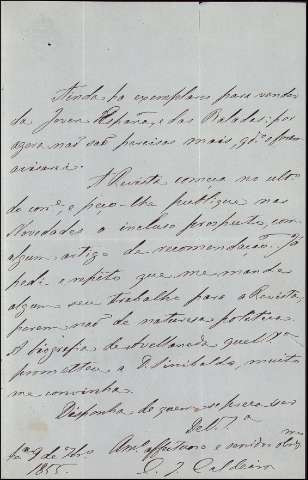 Ainda ha exemplares para vender
da Joven España, e das Baladas: por
agora não são precisas mais, qdo o forem
avisarei.
A Revista começa no ulto
de corre, e peço-lhe publique nas
Novedades o incluso prospecto, com
algum artigo de recomendação. Já
pedi e repito que me mande
algum seu trabalho para a Revista
porem não de natureza politica.
A biografia de Avellaneda que V. Exa
prometteu a D. Sinibaldo, muito
me convinha.
Disponha de quem se preza ser
De V. Exa
9 de
Amo affectuoso e servidor obrigmo
1855.